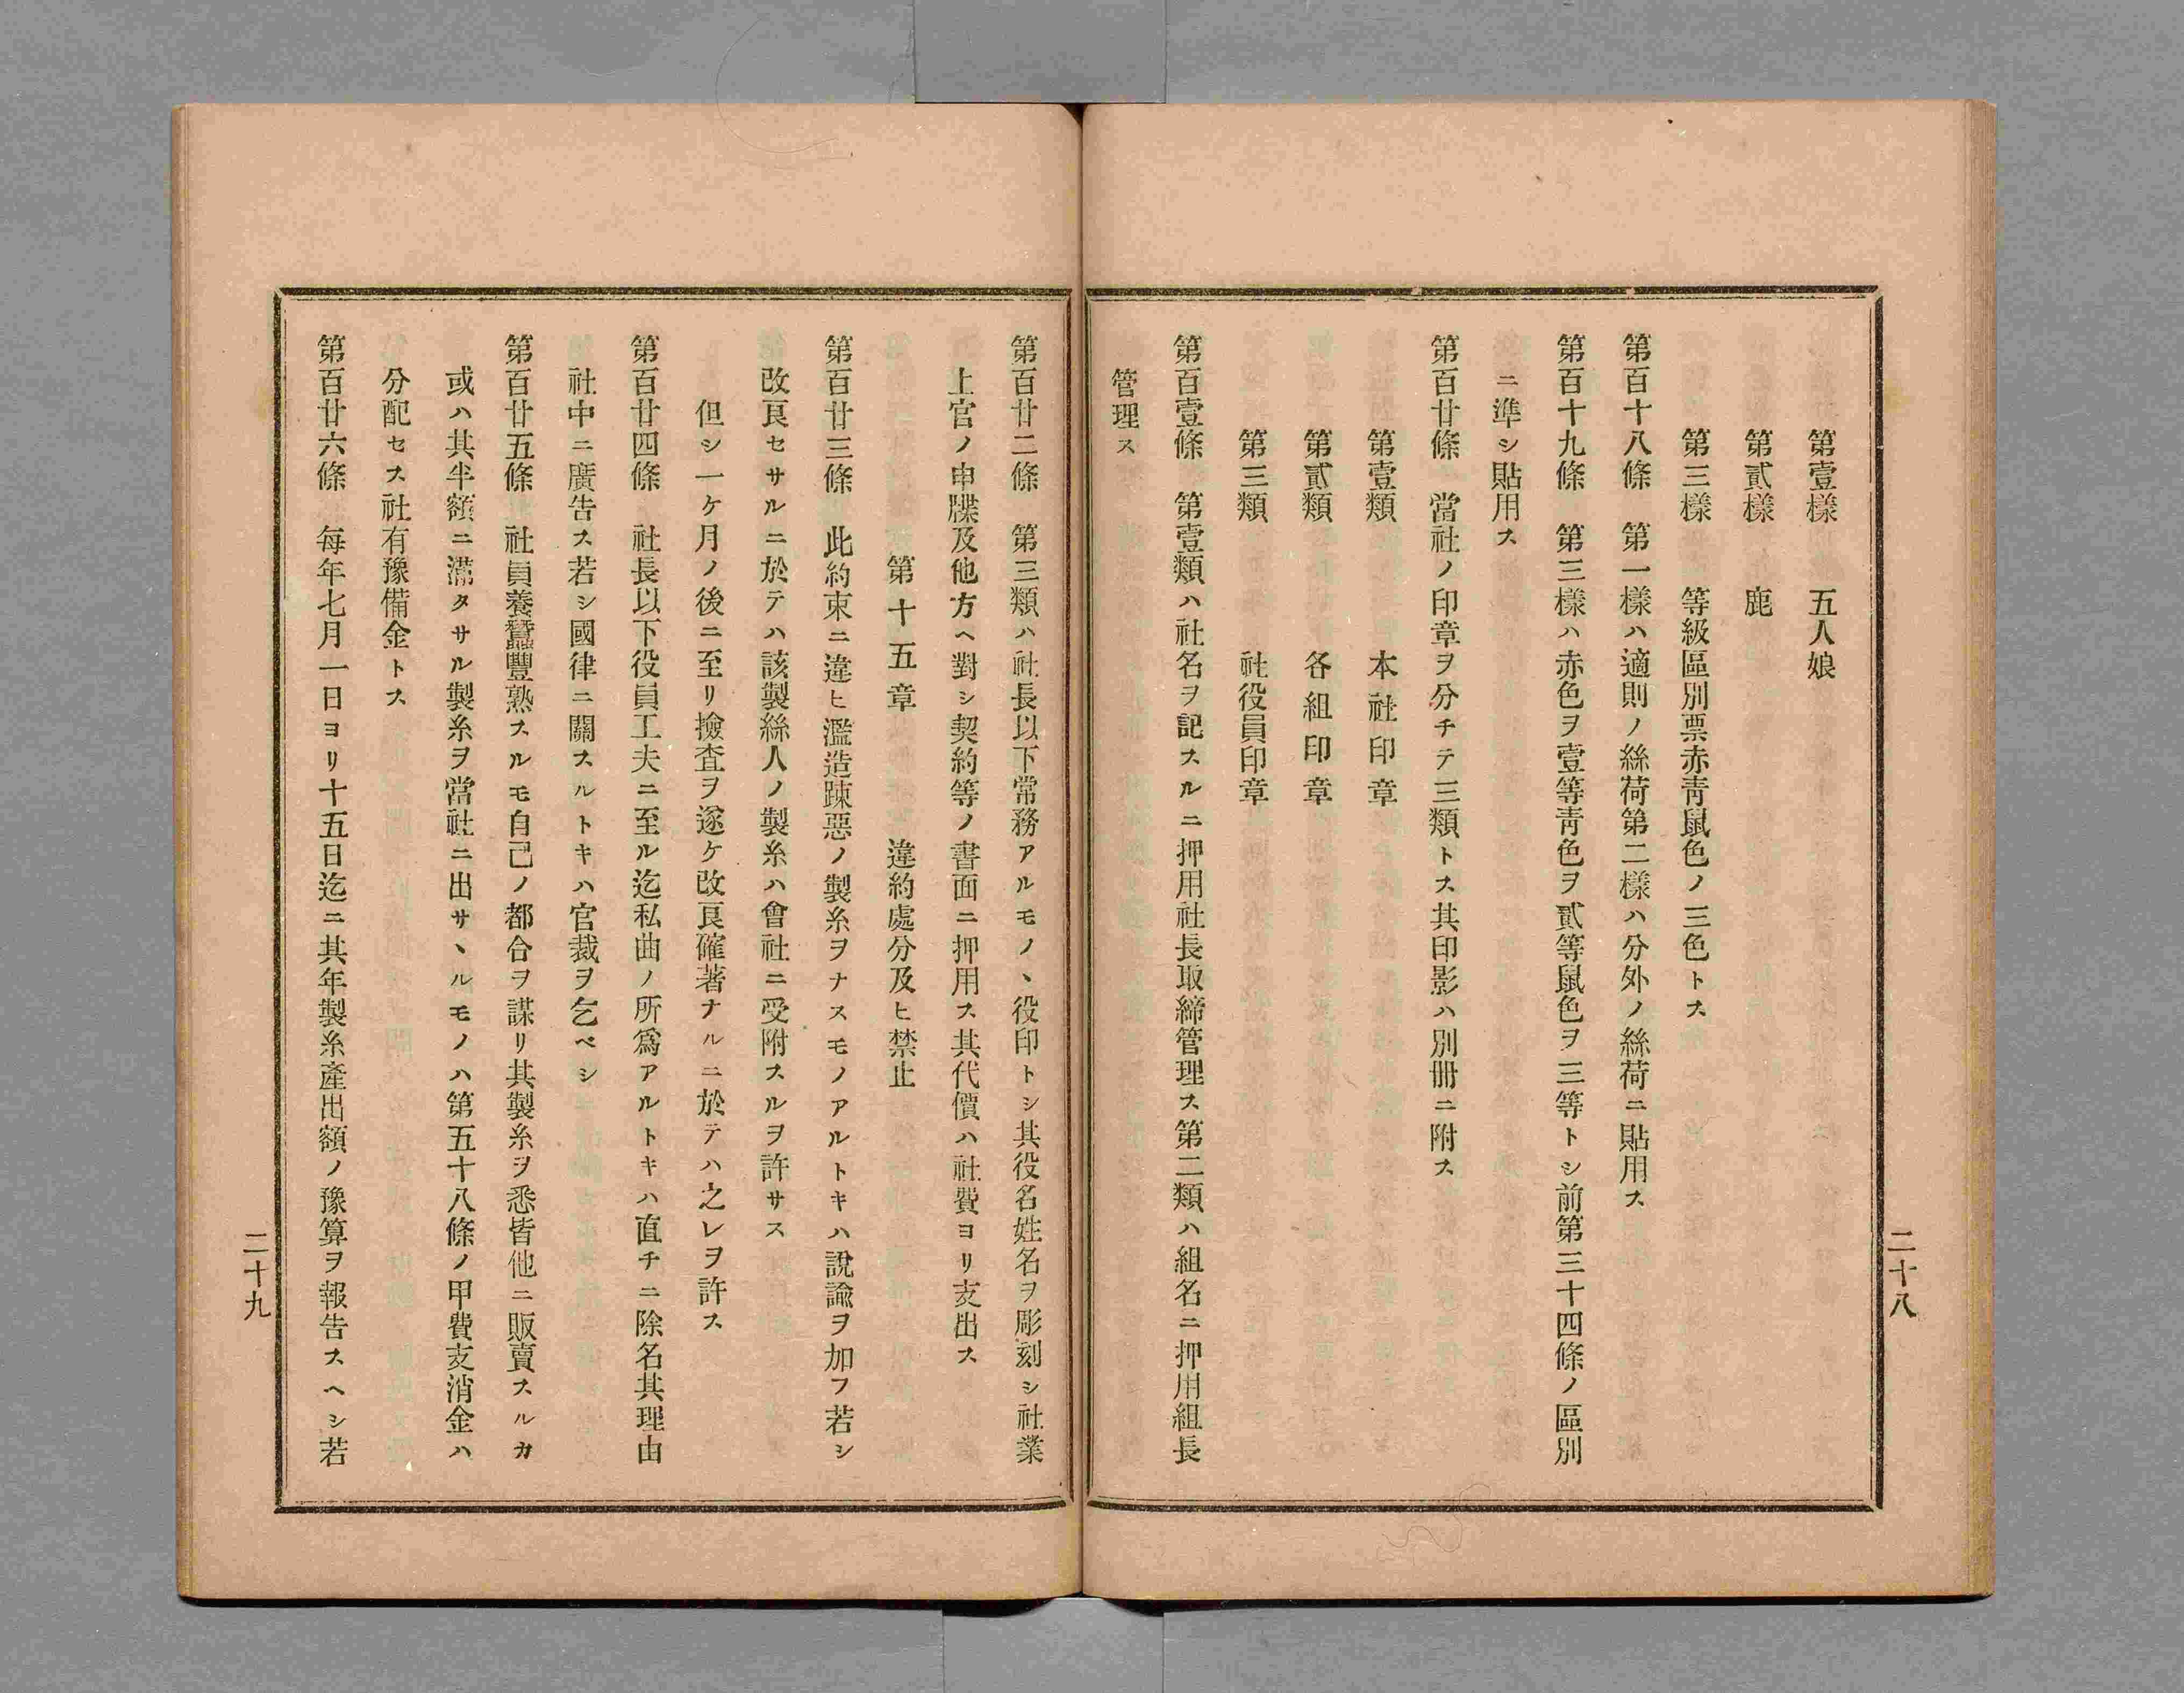 第壹樣　五人娘
第貳樣　鹿
第三樣　等級區別票赤靑鼠色ノ三色トス
第百十八條　第一樣ハ適則ノ絲荷第二樣ハ分外ノ絲荷ニ貼用ス
第百十九條　第三樣ハ赤色ヲ壹等靑色ヲ貳等鼠色ヲ三等トシ前第三十四條ノ區別
ニ準シ貼用ス
第百廿條　當社ノ印章ヲ分チテ三類トス其印影ハ別冊ニ附ス
第壹類　本社印章
第貳類　各組印章
第三類　社役員印章
第百壹條　第壹類ハ社名ヲ記スルニ押用社長取締管理ス第二類ハ組名ニ押用組長
管理ス
二十八
第百廿二條　第三類ハ社長以下常務アルモノヽ役印トシ其役名姓名ヲ彫刻シ社業
上官ノ申牒及他方ヘ對シ契約等ノ書面ニ押用ス其代價ハ社費ヨリ支出ス
第十五章　違約處分及ヒ禁止
第百廿三條　此約束ニ違ヒ濫造踈惡ノ製糸ヲナスモノアルトキハ說諭ヲ加フ若シ
改良セサルニ於テハ該製絲人ノ製糸ハ會社ニ受附スルヲ許サス
但シ一ケ月ノ後ニ至リ撿査ヲ遂ケ改良確著ナルニ於テハ之レヲ許ス
第百廿四條　社長以下役員工夫ニ至ル迄私曲ノ所爲アルトキハ直チニ除名其理由
社中ニ廣告ス若シ國律ニ關スルトキハ官裁ヲ乞ベシ
第百廿五條　社員養蠶豐熟スルモ自己ノ都合ヲ謀リ其製糸ヲ悉皆他ニ販賣スルカ
或ハ其半額ニ滿タサル製糸ヲ當社ニ出サヽルモノハ第五十八條ノ甲費支消金ハ
分配セス社有豫備金トス
第百廿六條　每年七月一日ヨリ十五日迄ニ其年製糸產出額ノ豫算ヲ報告スヘシ若
二十九